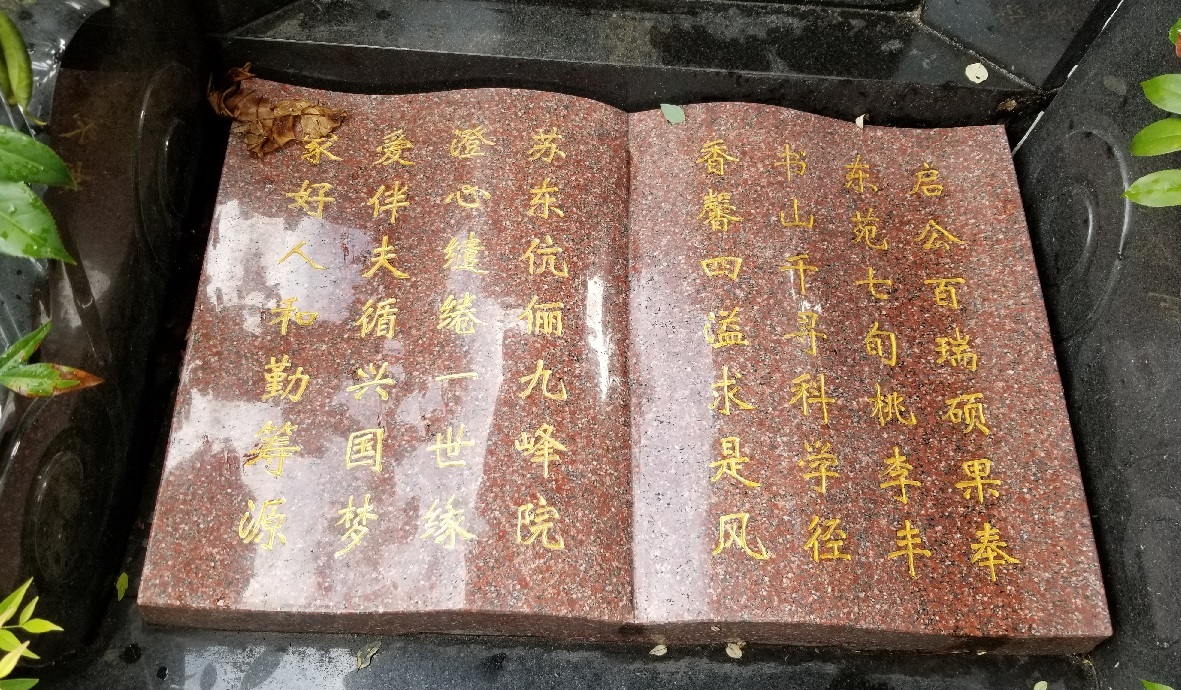 启公百瑞硕果奉
东苑七旬桃李丰
书山千寻科学径
香馨四溢求是风
苏东伉俪九峰院
澄心缱绻一世缘
爱伴夫循兴国梦
家好人和勤筹源